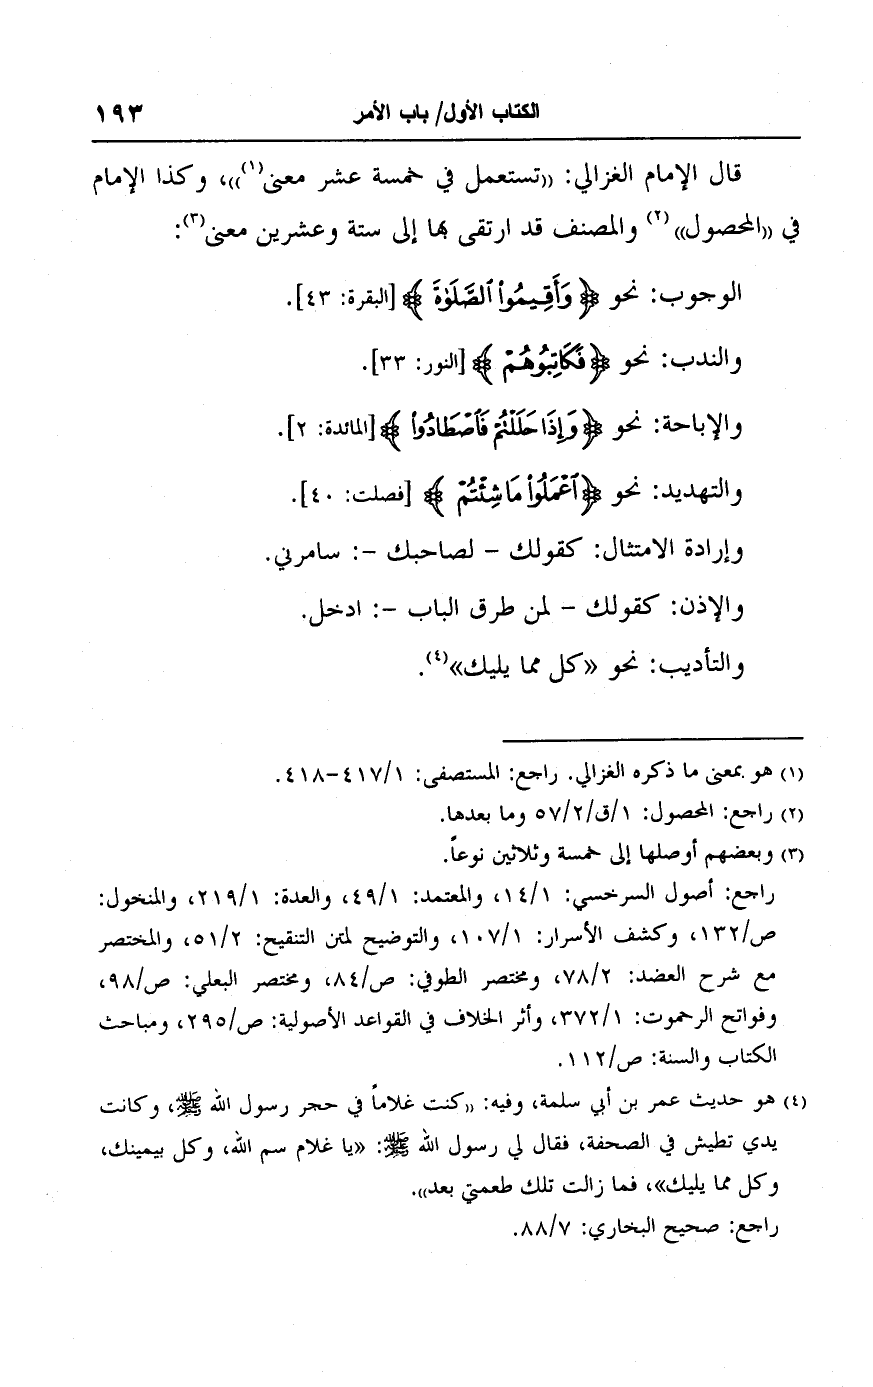 الكتاب الأول/ باب الأمر ١٩٣
قال الإمام الغزالي: ((تستعمل في خمسة عشر معنى(١)))، وكذا الإمام
في ((المحصول))(٢) والمصنف قد ارتقى بها إلى ستة وعشرين معنى(٣):
الوجوب: نحو ﴿وَأَقِيمُوا۟ ٱلصَّلَوٰةَ﴾ [البقرة: ٤٣].
والندب: نحو ﴿فَكَاتِبُوهُمْ﴾ [النور: ٣٣].
والإباحة: نحو ﴿وَإِذَا حَلَلْتُمْ فَٱصْطَادُوا۟﴾ [المائدة: ٢].
والتهديد: نحو ﴿ٱعْمَلُوا۟ مَا شِئْتُمْ﴾ [فصلت: ٤٠].
وإرادة الامتثال: كقولك – لصاحبك –: سامرني.
والإذن: كقولك – لمن طرق الباب –: ادخل.
والتأديب: نحو «كل مما يليك»(٤).
(١) هو بمعنى ما ذكره الغزالي. راجع: المستصفى: ٤١٧/١–٤١٨.
(٢) راجع: المحصول: ١/ق/٥٧/٢ وما بعدها.
(٣) وبعضهم أوصلها إلى خمسة وثلاثين نوعاً.
راجع: أصول السرخسي: ١٤/١، والمعتمد: ٤٩/١، والعدة: ٢١٩/١، والمنخول:
ص/١٣٢، وكشف الأسرار: ١٠٧/١، والتوضيح لمتن التنقيح: ٥١/٢، والمختصر
مع شرح العضد: ٧٨/٢، ومختصر الطوفي: ص/٨٤، ومختصر البعلي: ص/٩٨،
وفواتح الرحموت: ٣٧٢/١، وأثر الخلاف في القواعد الأصولية: ص/٢٩٥، ومباحث
الكتاب والسنة: ص/١١٢.
(٤) هو حديث عمر بن أبي سلمة، وفيه: ((كنت غلاماً في حجر رسول الله ﷺ، وكانت
يدي تطيش في الصحفة، فقال لي رسول الله ﷺ: «يا غلام سم الله، وكل بيمينك،
وكل مما يليك»، فما زالت تلك طعمتي بعد)).
راجع: صحيح البخاري: ٨٨/٧.